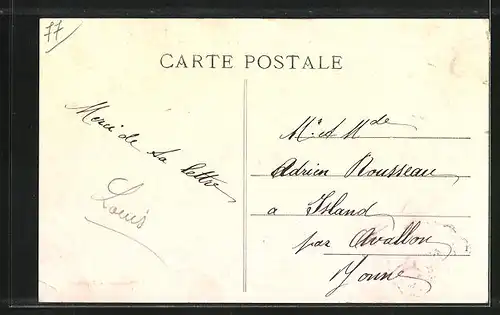 77
CARTE POSTALE
Merci de ta lettre
Louis
Mr et Mde
Adrien Rousseau
a Island
par Avallon
Yonne